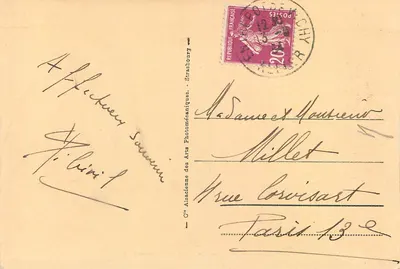 Affectueux souvenir
Cie Alsacienne des Arts Photomécaniques. - Strasbourg
POSTES
REPUBLIQUE FRANÇAISE
20c
Madame et Monsieur
Millet
rue Corvisart
Paris 13e